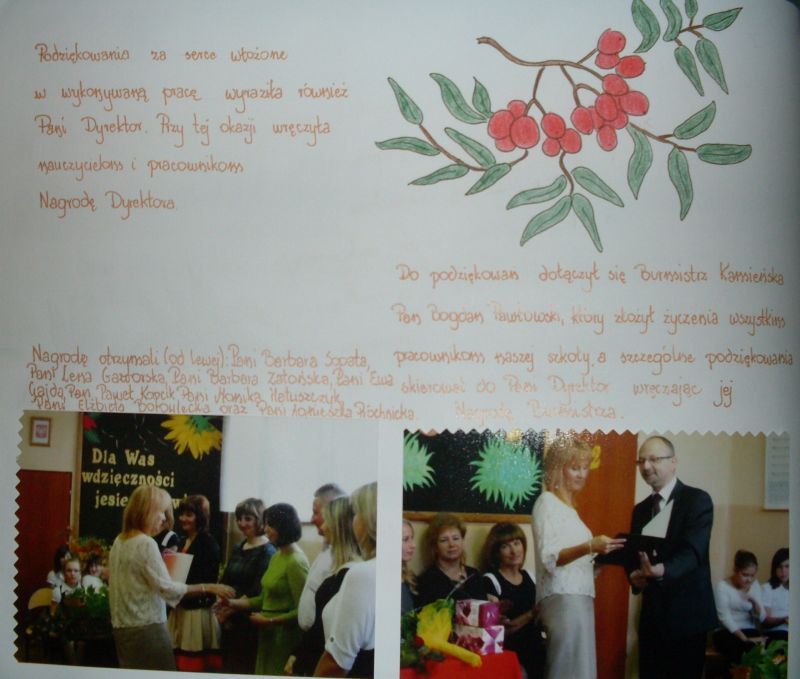 Podziękowania za serce włożone
w wykonywaną pracę wyraziła również
Pani Dyrektor. Przy tej okazji wręczyła
nauczycielom i pracownikom
Nagrodę Dyrektora.
Do podziękowań dołączył się Burmistrz Kamieńska
Pan Bogdan Pawłowski, który złożył życzenia wszystkim
pracownikom naszej szkoły, a szczególne podziękowania
skierował do Pani Dyrektor wręczając jej
Nagrodę Burmistrza.
Nagrodę otrzymali (od lewej): Pani Barbara Sopata,
Pani Lena Gaworska, Pani Barbara Zatońska, Pani Ewa
Gajda, Pan Paweł Kopcik, Pani Monika Matuszczyk,
Pani Elżbieta oraz Pani Agnieszka Płóchnicka.
Dla Was
wdzięczności